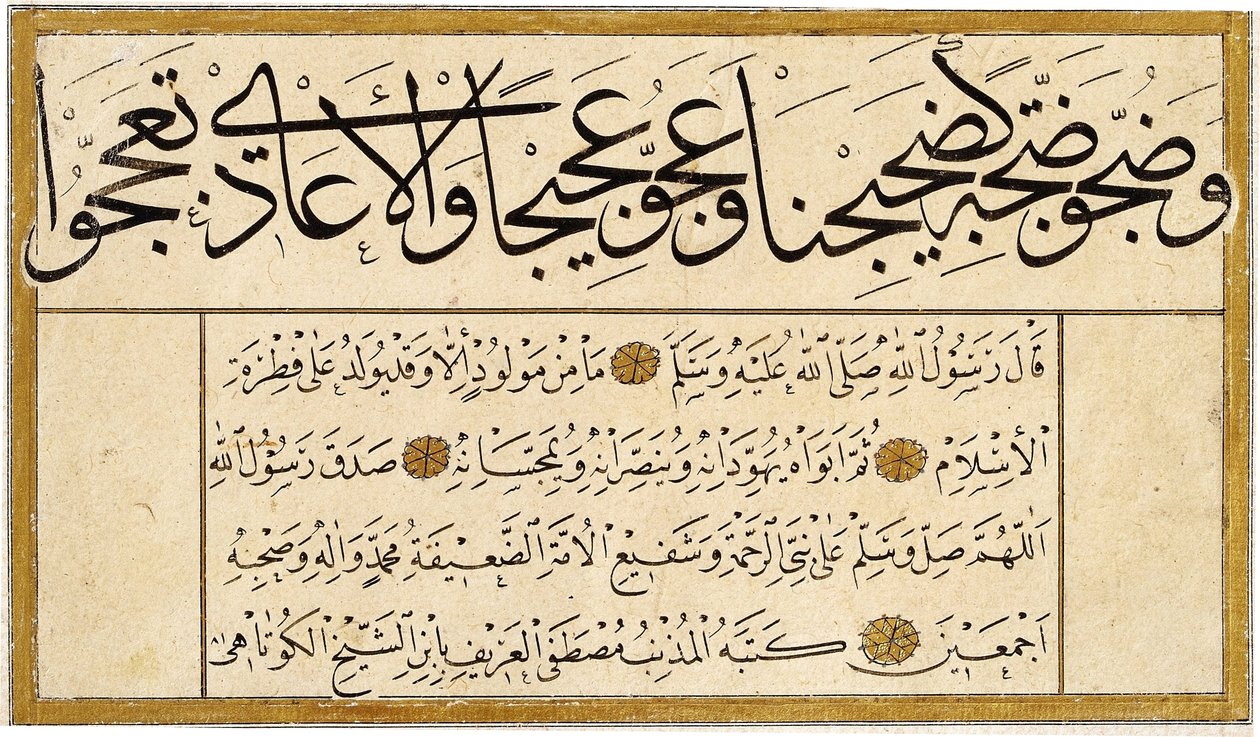 والاعادي تعججوا
قَالَ رَسُولُ اللّٰهِ صَلَّى اللّٰهُ عَلَيْهِ وَسَلَّمَ مَا مِنْ مَوْلُودٍ اِلَّا وَقَدْ يُولَدُ عَلَى فِطْرَةِ
الْاِسْلَامِ ثُمَّ اَبَوَاهُ يُهَوِّدَانِهِ وَيُنَصِّرَانِهِ وَيُمَجِّسَانِهِ صَدَقَ رَسُولُ اللّٰهِ
اَللّٰهُمَّ صَلِّ وَسَلِّمْ عَلَى نَبِيِّ الرَّحْمَةِ وَشَفِيعِ الْاُمَّةِ الضَّعِيفَةِ مُحَمَّدٍ وَاٰلِهِ وَصَحْبِهِ
اَجْمَعِينَ كَتَبَهُ الْمُذْنِبُ مُصْطَفَى الْعَرِيفِ بِابْنِ الشَّيْخِ الْكُوتَاهِى